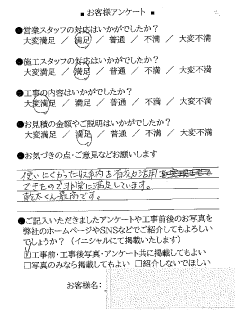 ■ お客様アンケート ■
●営業スタッフの対応はいかがでしたか?
大変満足 / 満足 / 普通 / 不満 / 大変不満
●施工スタッフの対応はいかがでしたか?
大変満足 / 満足 / 普通 / 不満 / 大変不満
●工事の内容はいかがでしたか?
大変満足 / 満足 / 普通 / 不満 / 大変不満
●お見積の金額やご説明はいかがでしたか?
大変満足 / 満足 / 普通 / 不満 / 大変不満
●お気づきの点・ご意見などお願いします
使いにくかった収納を有効活用
できもので非常に満足しています。
●ご記入いただきましたアンケートや工事前後のお写真を
弊社のホームページやSNSなどでご紹介してもよろしい
でしょうか? (イニシャルにて掲載いたします)
工事前・工事後写真・アンケート共に掲載してもよい
□写真のみなら掲載してもよい □紹介しないでほしい
お客様名: